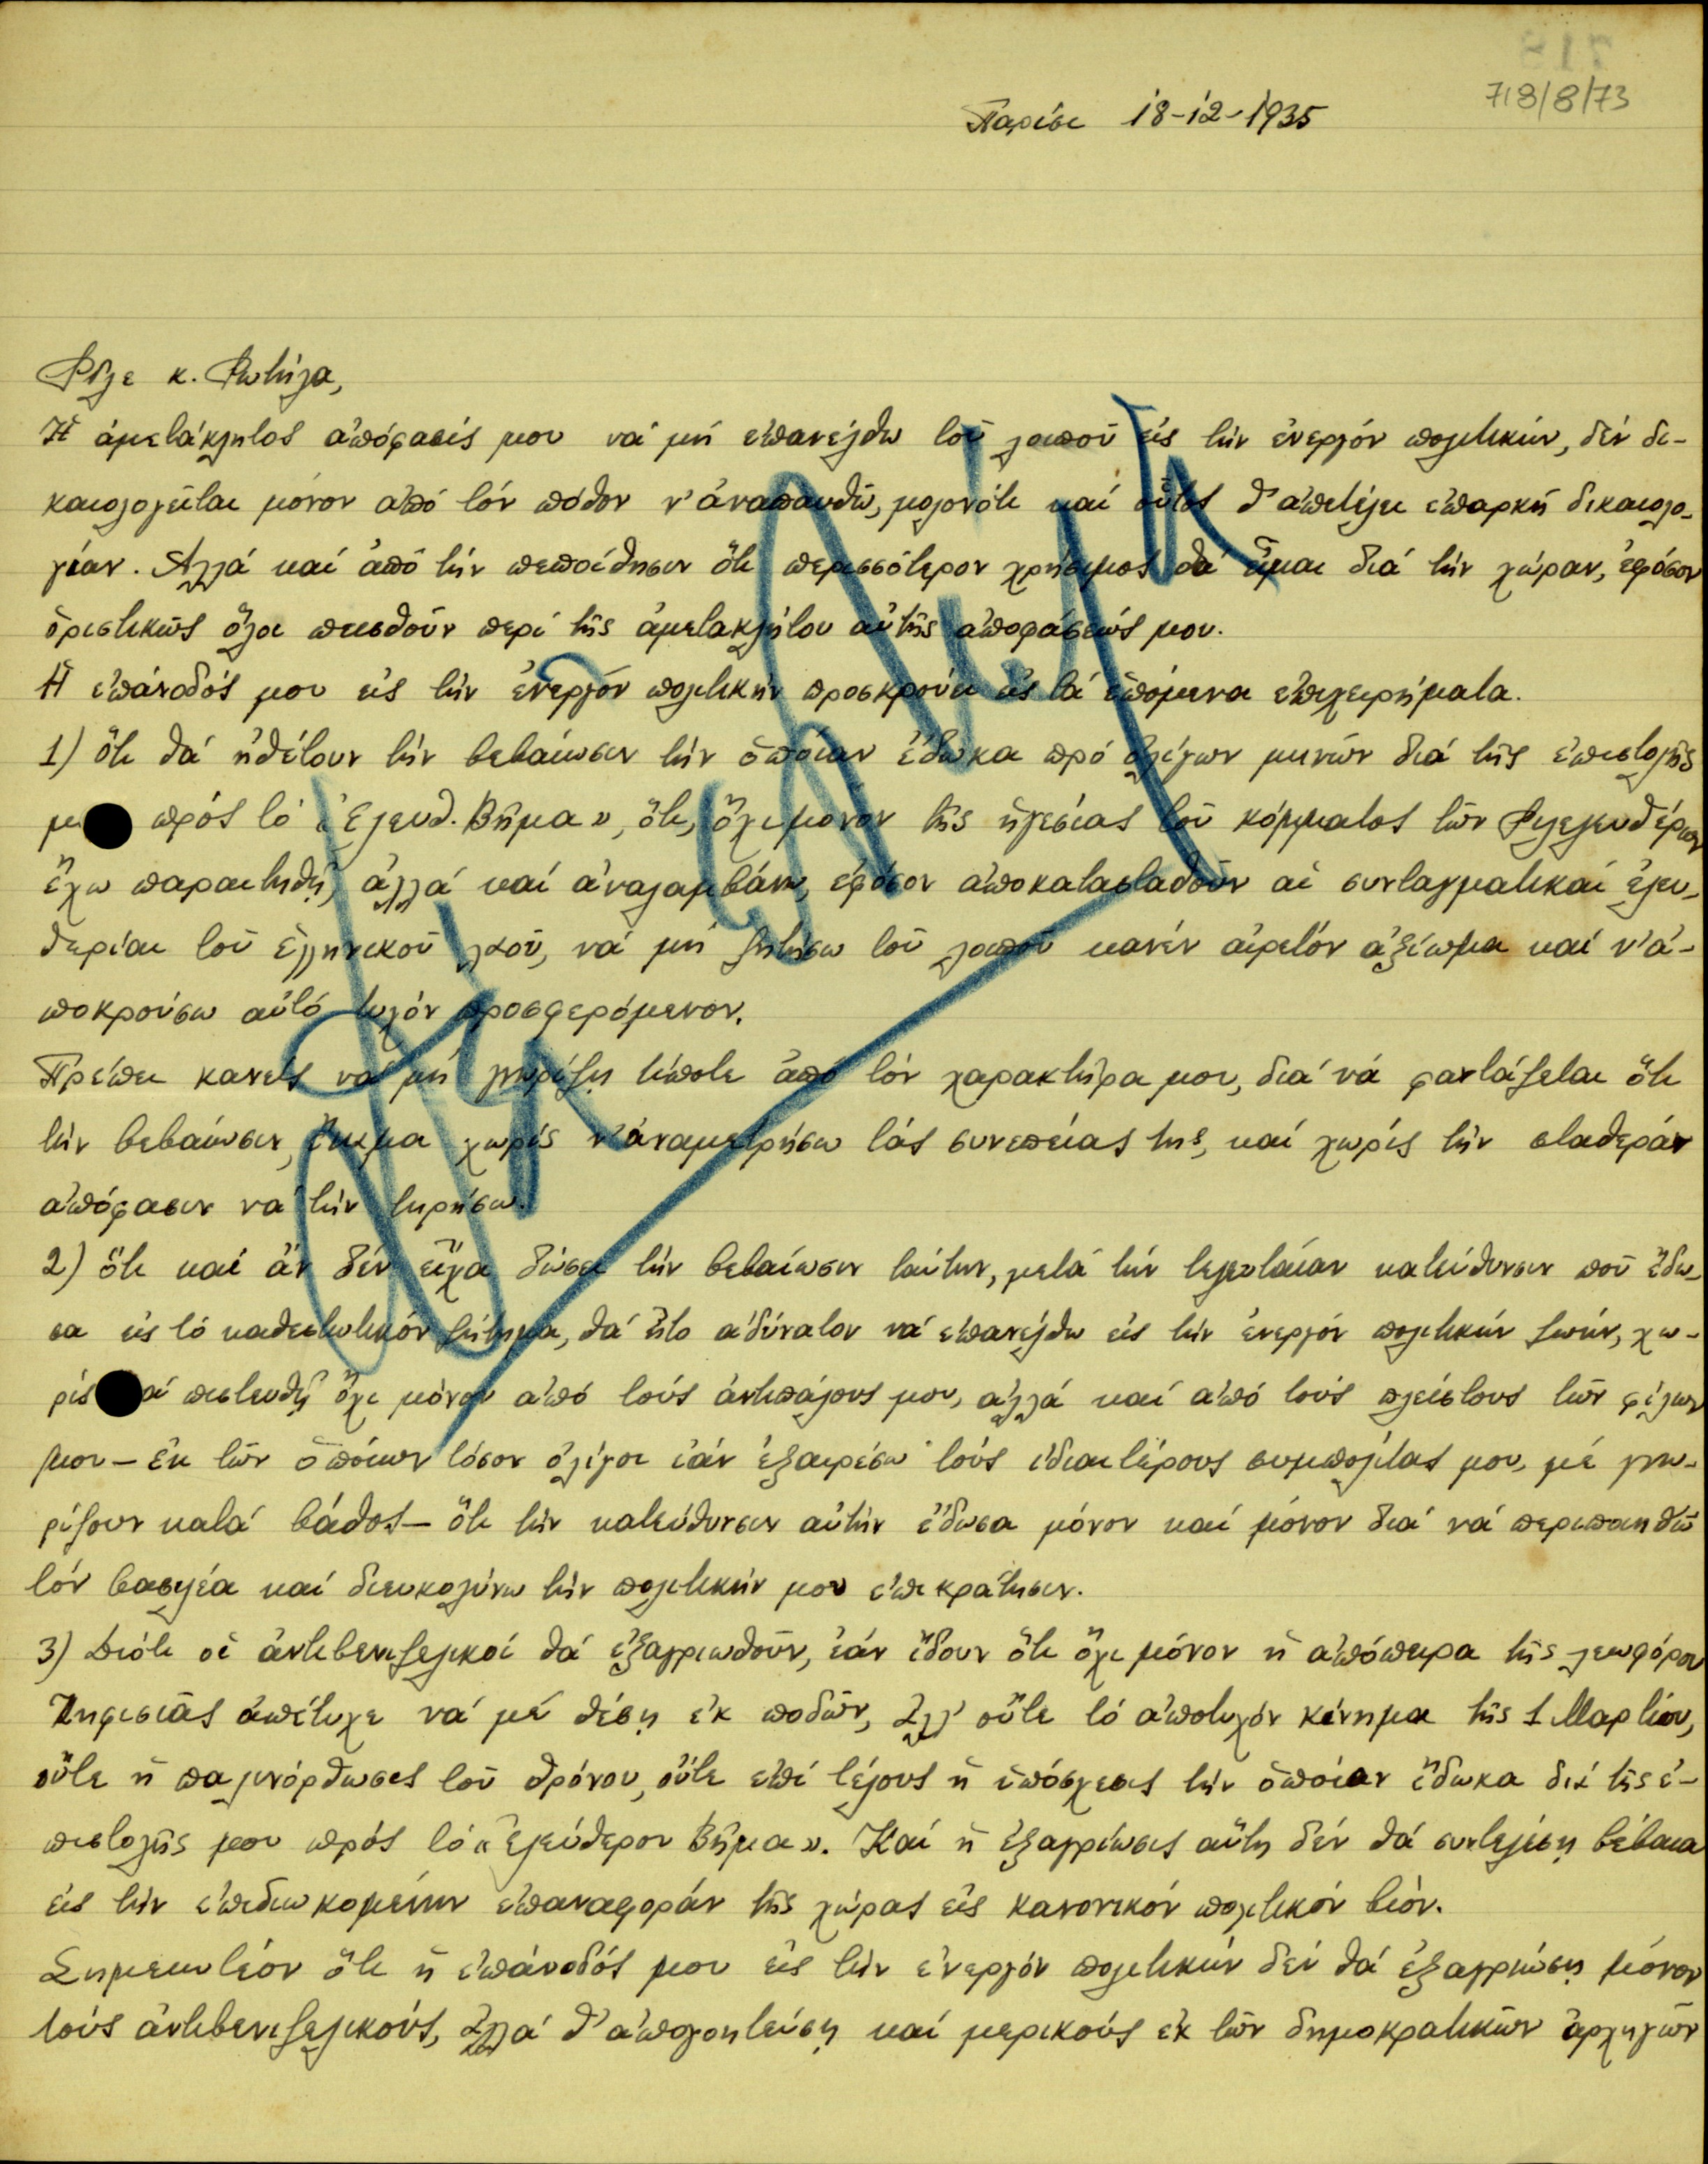 718/8/73
Παρίσι 18-12-1935
Φίλε κ. Φωτήλα,
Ἡ ἀμετάκλητος ἀπόφασίς μου νά μή ἐπανέλθω τοῦ λοιποῦ εἰς τήν ἐνεργόν πολιτικήν, δέν δι-
καιολογεῖται μόνον ἀπό τόν πόθον ν' ἀναπαυθῶ, μολονότι καί οὗτος θ' ἀπετέλει ἐπαρκῆ δικαιολο-
γίαν. Ἀλλά καί ἀπό τήν πεποίθησιν ὅτι περισσότερον χρήσιμος θά εἶμαι διά τήν χώραν, ἐφόσον
ὁριστικῶς ὅλοι πεισθοῦν περί τῆς ἀμετακλήτου αὐτῆς ἀποφάσεώς μου.
Ἡ ἐπάνοδός μου εἰς τήν ἐνεργόν πολιτικήν προσκρούει εἰς τά ἑπόμενα ἐπιχειρήματα.
1) ὅτι θά ἠθέτουν τήν βεβαίωσιν τήν ὁποίαν ἔδωκα πρό ὀλίγων μηνῶν διά τῆς ἐπιστολῆς
μ πρός τό «Ἐλευθ. Βῆμα», ὅτι, ὄχι μόνον τῆς ἡγεσίας τοῦ κόμματος τῶν Φιλελευθέρων
ἔχω παραιτηθῆ, ἀλλά καί ἀναλαμβάνω, ἐφόσον ἀποκατασταθοῦν αἱ συνταγματικαί ἐλευ-
θερίαι τοῦ ἑλληνικοῦ λαοῦ, νά μή ζητήσω τοῦ λοιποῦ κανέν αἱρετόν ἀξίωμα καί ν' ἀ-
ποκρούσω αὐτό τυχόν προσφερόμενον.
Πρέπει κανείς νά μή γνωρίζῃ τίποτε ἀπό τόν χαρακτῆρα μου, διά νά φαντάζεται ὅτι
τήν βεβαίωσιν, χωρίς ν' ἀναμετρήσω τάς συνεπείας της, καί χωρίς τήν σταθεράν
ἀπόφασιν νά τήν τηρήσω.
2) ὅτι καί ἄν δέν εἶχα δώσει τήν βεβαίωσιν ταύτην, μετά τήν τελευταίαν κατεύθυνσιν πού ἔδω-
σα εἰς τό καθεστωτικόν ζήτημα, θά ἦτο ἀδύνατον νά ἐπανέλθω εἰς τήν ἐνεργόν πολιτικήν ζωήν, χω-
ρίς ά πιστευθῇ ὄχι μόνον ἀπό τούς ἀντιπάλους μου, ἀλλά καί ἀπό τούς πλείστους τῶν φίλων
μου — ἐκ τῶν ὁποίων τόσον ὀλίγοι ἐάν ἐξαιρέσω τούς ἰδιαιτέρους συμπολίτας μου, μέ γνω-
ρίζουν κατά βάθος — ὅτι τήν κατεύθυνσιν αὐτήν ἔδωσα μόνον καί μόνον διά νά περιποιηθῶ
τόν βασιλέα καί διευκολύνω τήν πολιτικήν μου ἐπικράτησιν.
3) Διότι οἱ ἀντιβενιζελικοί θά ἐξαγριωθοῦν, ἐάν ἴδουν ὅτι ὄχι μόνον ἡ ἀπόπειρα τῆς λεωφόρου
Κηφισιᾶς ἀπέτυχε νά μέ θέσῃ ἐκ ποδῶν, ἀλλ' οὔτε τό ἀποτυχόν κίνημα τῆς 1 Μαρτίου,
οὔτε ἡ παλινόρθωσις τοῦ θρόνου, οὔτε ἐπί τέλους ἡ ὑπόσχεσις τήν ὁποίαν ἔδωκα διά τῆς ἐ-
πιστολῆς μου πρός τό «Ἐλεύθερον Βῆμα». Καί ἡ ἐξαγρίωσις αὕτη δέν θά συντελέσῃ βέβαια
εἰς τήν ἐπιδιωκομένην ἐπαναφοράν τῆς χώρας εἰς κανονικόν πολιτικόν βίον.
Σημειωτέον ὅτι ἡ ἐπάνοδός μου εἰς τήν ἐνεργόν πολιτικήν δέν θά ἐξαγριώσῃ μόνον
τούς ἀντιβενιζελικούς, ἀλλά θ' ἀπογοητεύσῃ καί μερικούς ἐκ τῶν δημοκρατικῶν ἀρχηγῶν